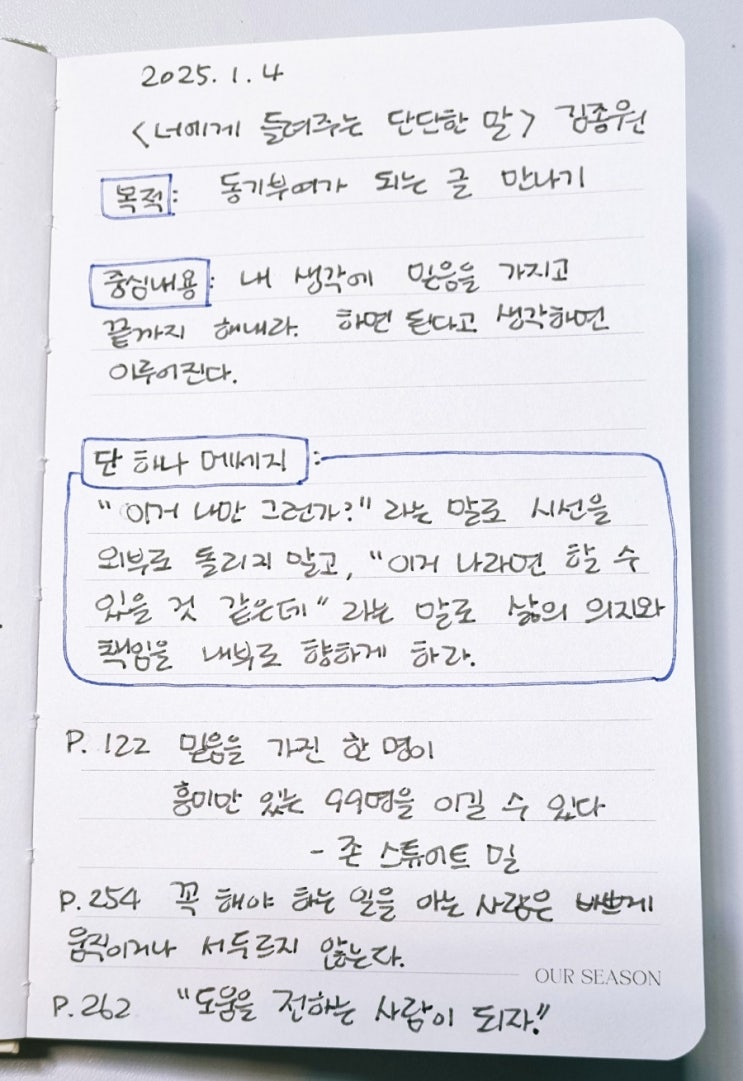 2025. 1. 4
<너에게 들려주는 단단한 말> 김종원
목적: 동기부여가 되는 글 만나기
중심내용: 내 생각에 믿음을 가지고
끝까지 해내라. 하면 된다고 생각하면
이루어진다.
단 하나 메세지:
"이거 나만 그런가?" 라는 말로 시선을
외부로 돌리지 말고, "이거 나라면 할 수
있을 것 같은데" 라는 말로 삶의 의지와
책임을 내부로 향하게 하라.
P. 122 믿음을 가진 한 명이
흥미만 있는 99명을 이길 수 있다
- 존 스튜어트 밀
P. 254 꼭 해야 하는 일을 아는 사람은 바쁘게
움직이거나 서두르지 않는다.
OUR SEASON
P. 262 "도움을 전하는 사람이 되자."